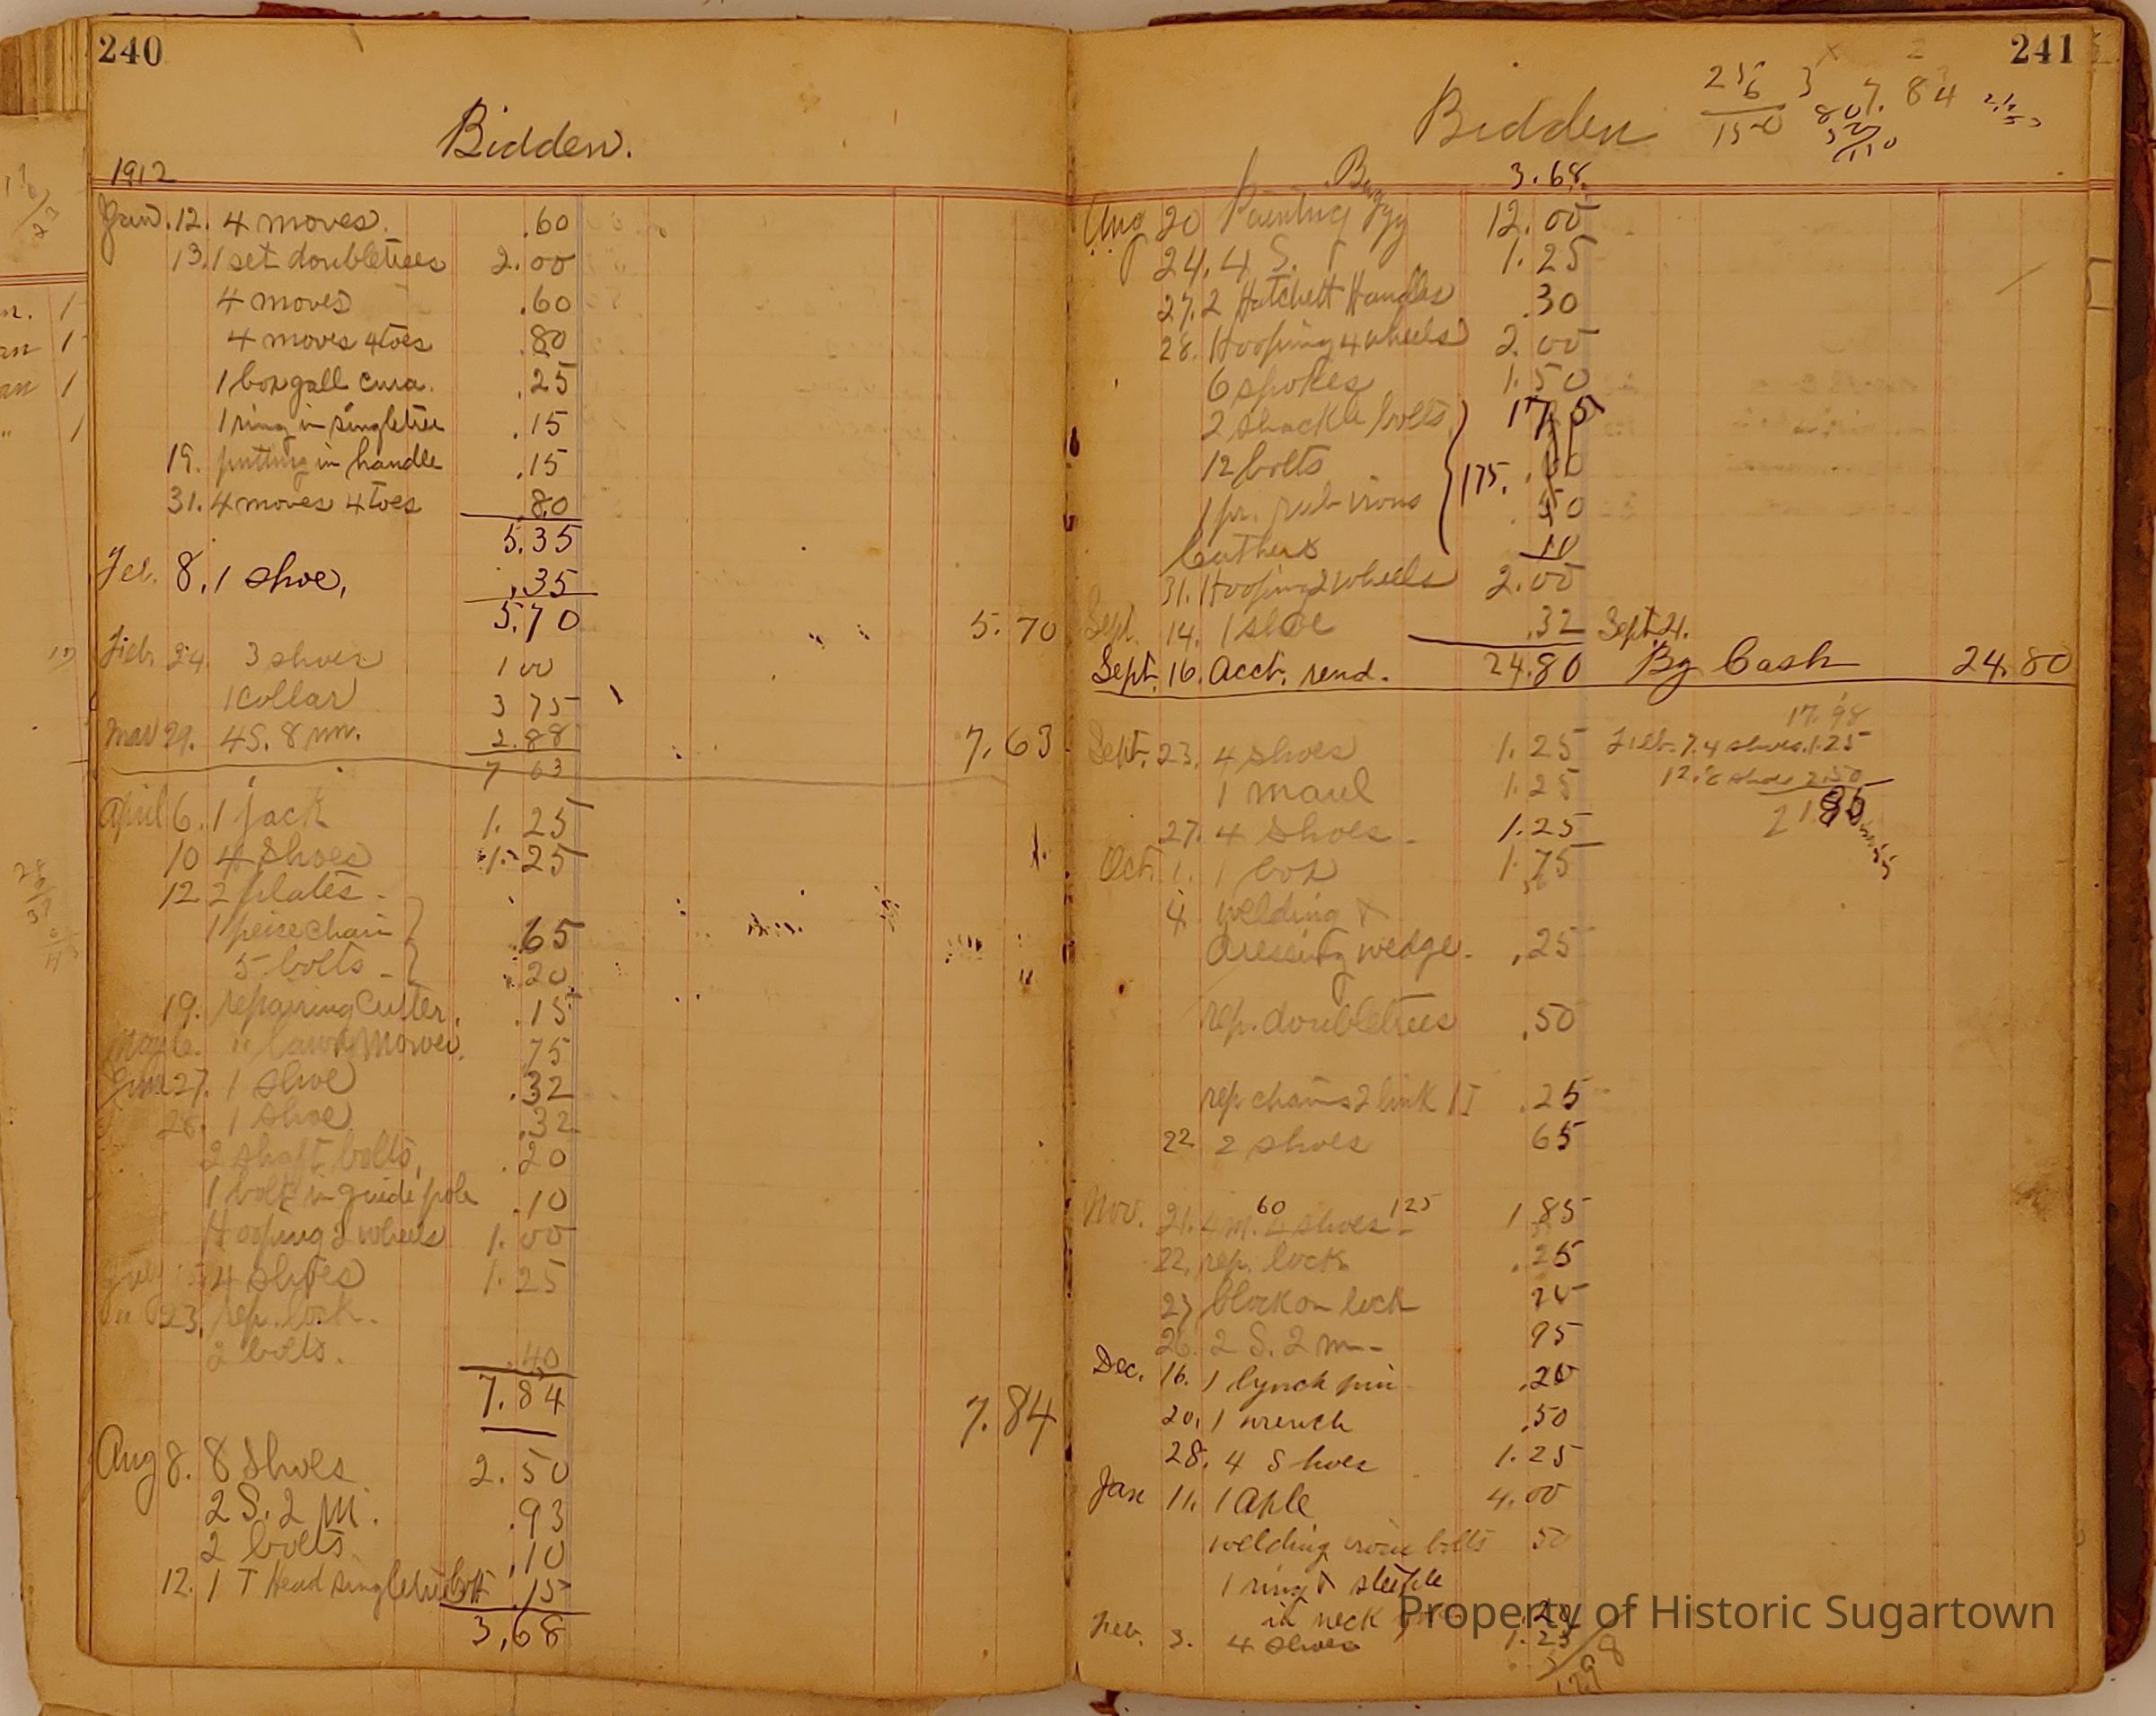 240
Bidden.
1912
Jan. 12. 4 moves. .60
13. 1 set doubletrees 2.00
4 moves .60
4 moves 4 toes .80
1 box gall cura. .25
1 ring in singletree .15
19. putting in handle .15
31. 4 moves 4 toes .80
5.35
Feb. 8. 1 shoe, .35
5.70 5.70
Feb. 24. 3 shoes 1 00
1 Collar 3 75
Mar 29. 4 S. 8 m. 2.88 7.63
7 63
April 6. 1 jack 1.25
10 4 Shoes 1.25
12 2 plates -
1 peice chain .65
5 bolts - .20
19. repairing Cutter. .15
May 6. " lawn Mower. 75
June 27. 1 shoe .32
28. 1 shoe .32
2 shaft bolts, .20
1 bolt in guide pole .10
Hooping 2 wheels 1.00
July 15 4 shoes 1.25
" 23. rep. lock.
2 bolts. .40
7.84 7.84
Aug 8. 8 Shoes 2.50
2 S. 2 M. .93
2 bolts .10
12. 1 T Head singletree bolt .15
3,68
241
Bidden
7.84
3.68
Aug 20 Painting Buggy 12.00
24. 4 S. 1.25
27. 2 Hatchett Handles .30
28. Hooping 4 wheels 2.00
6 spokes 1.50
2 shackle bolts 175
12 bolts 175.
1 pr. rub irons .50
Leathers 10
31. Hooping 2 wheels 2.00
Sept. 14. 1 shoe .32 Sept 21.
Sept. 16. Acct. rend. 24.80 By Cash 24.80
17.98
Sept. 23. 4 shoes 1.25 Feb. 7. 4 shoes. 1.25
1 maul 1.25 12. 8 shoes 2.50
27. 4 Shoes - 1.25
Oct. 1. 1 box 1.75
4. welding &
dressing wedge. .25
rep. doubletrees .50
rep chains 2 link 1 T .25
22 2 shoes 65
Nov. 21. 4 m. 60 4 shoes - 125 1 85
22. rep. lock .25
23 block on lock 25
26. 2 S. 2 m - 95
Dec. 16. 1 lynch pin .20
20. 1 wrench .50
28. 4 Shoes 1.25
Jan 11. 1 Axle 4.00
welding bolts 50
1 ring & steeple
in neck .20
Feb. 3. 4 shoes 1.25
Property of Historic Sugartown